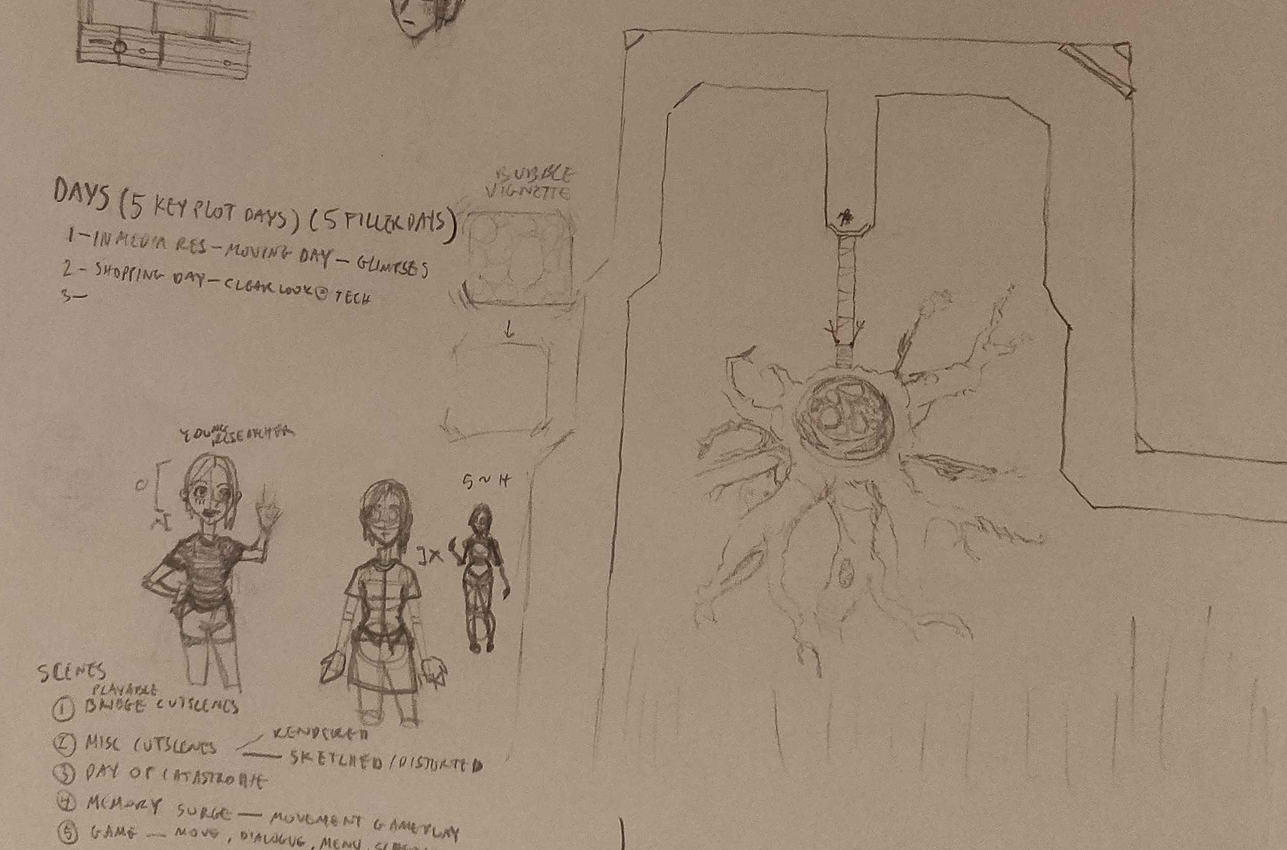 BUBBLE
VIGNETTE
DAYS (5 KEY PLOT DAYS) (5 FILLER DAYS)
1-IN MEDIA RES-MOVING DAY-GLIMPSES
2- SHOPPING DAY-CLEAR LOOK@TECH
3-
YOUNG
RESEARCHER
5~H
]X
SCENES
PLAYABLE
① BRIDGE CUTSCENES
② MISC CUTSCENES
RENDERED
SKETCHED/DISTORTED
③ DAY OF CATASTROPHE
④ MEMORY SURGE — MOVEMENT GAMEPLAY
⑤ GAME — MOVE, DIALOGUE, MENU,